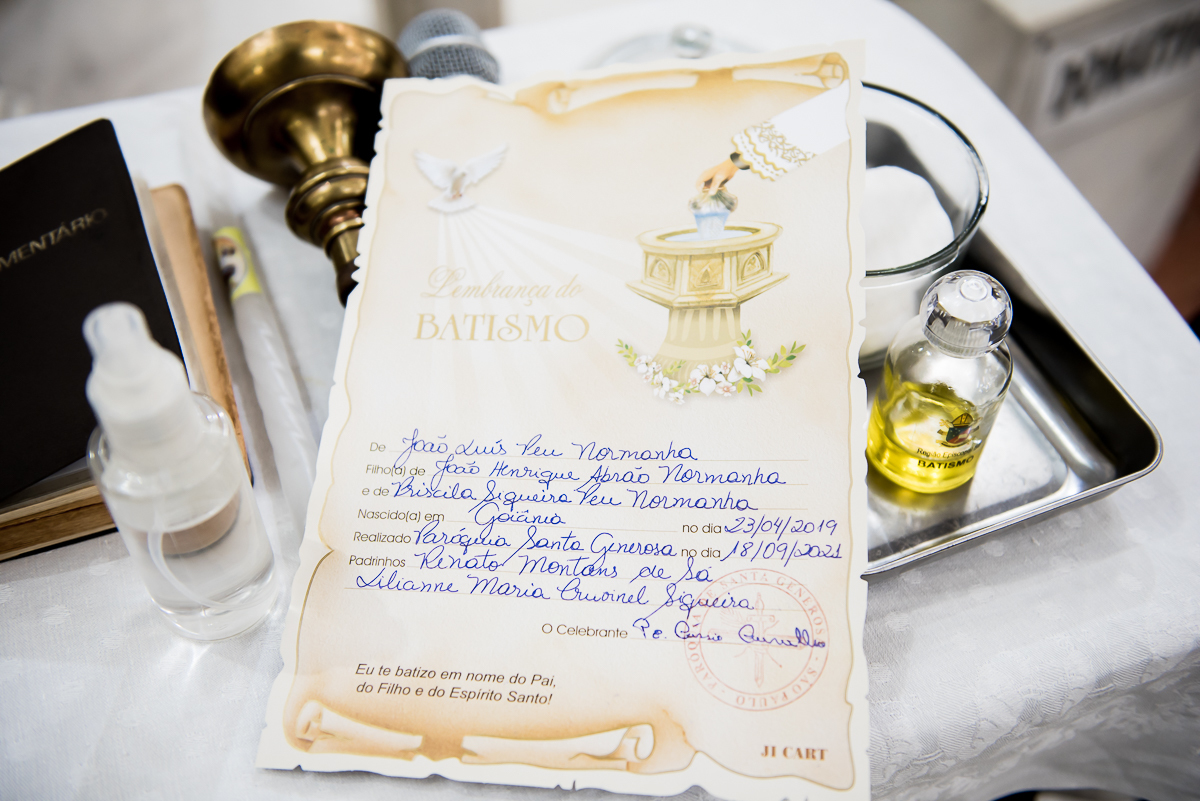 MENTÁRIO
Lembrança do
BATISMO
De João Luís Peu Normanha
Filho(a) de João Henrique Abrão Normanha
e de Priscila Siqueira Peu Normanha
Nascido(a) em Goiânia no dia 23/04/2019
Realizado Paróquia Santa Generosa no dia 18/09/2021
Padrinhos Renato Montans de Sá
Lilianne Maria Cruvinel Siqueira
O Celebrante Pe. Cássio Carvalho
SANTA GENEROSA - SÃO PAULO - PARÓQUIA
Eu te batizo em nome do Pai,
do Filho e do Espírito Santo!
JI CART
Região Episcopal
BATISMO